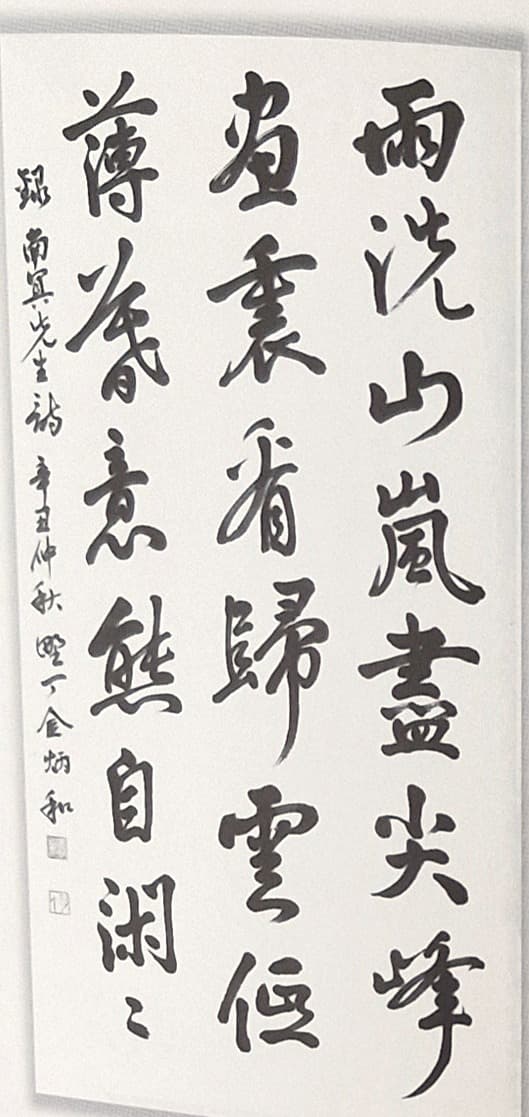 雨洗山嵐盡尖峰
畫裏看歸雲低
薄暮意態自閑〻
錄南冥先生詩 辛丑仲秋 野丁金炳和